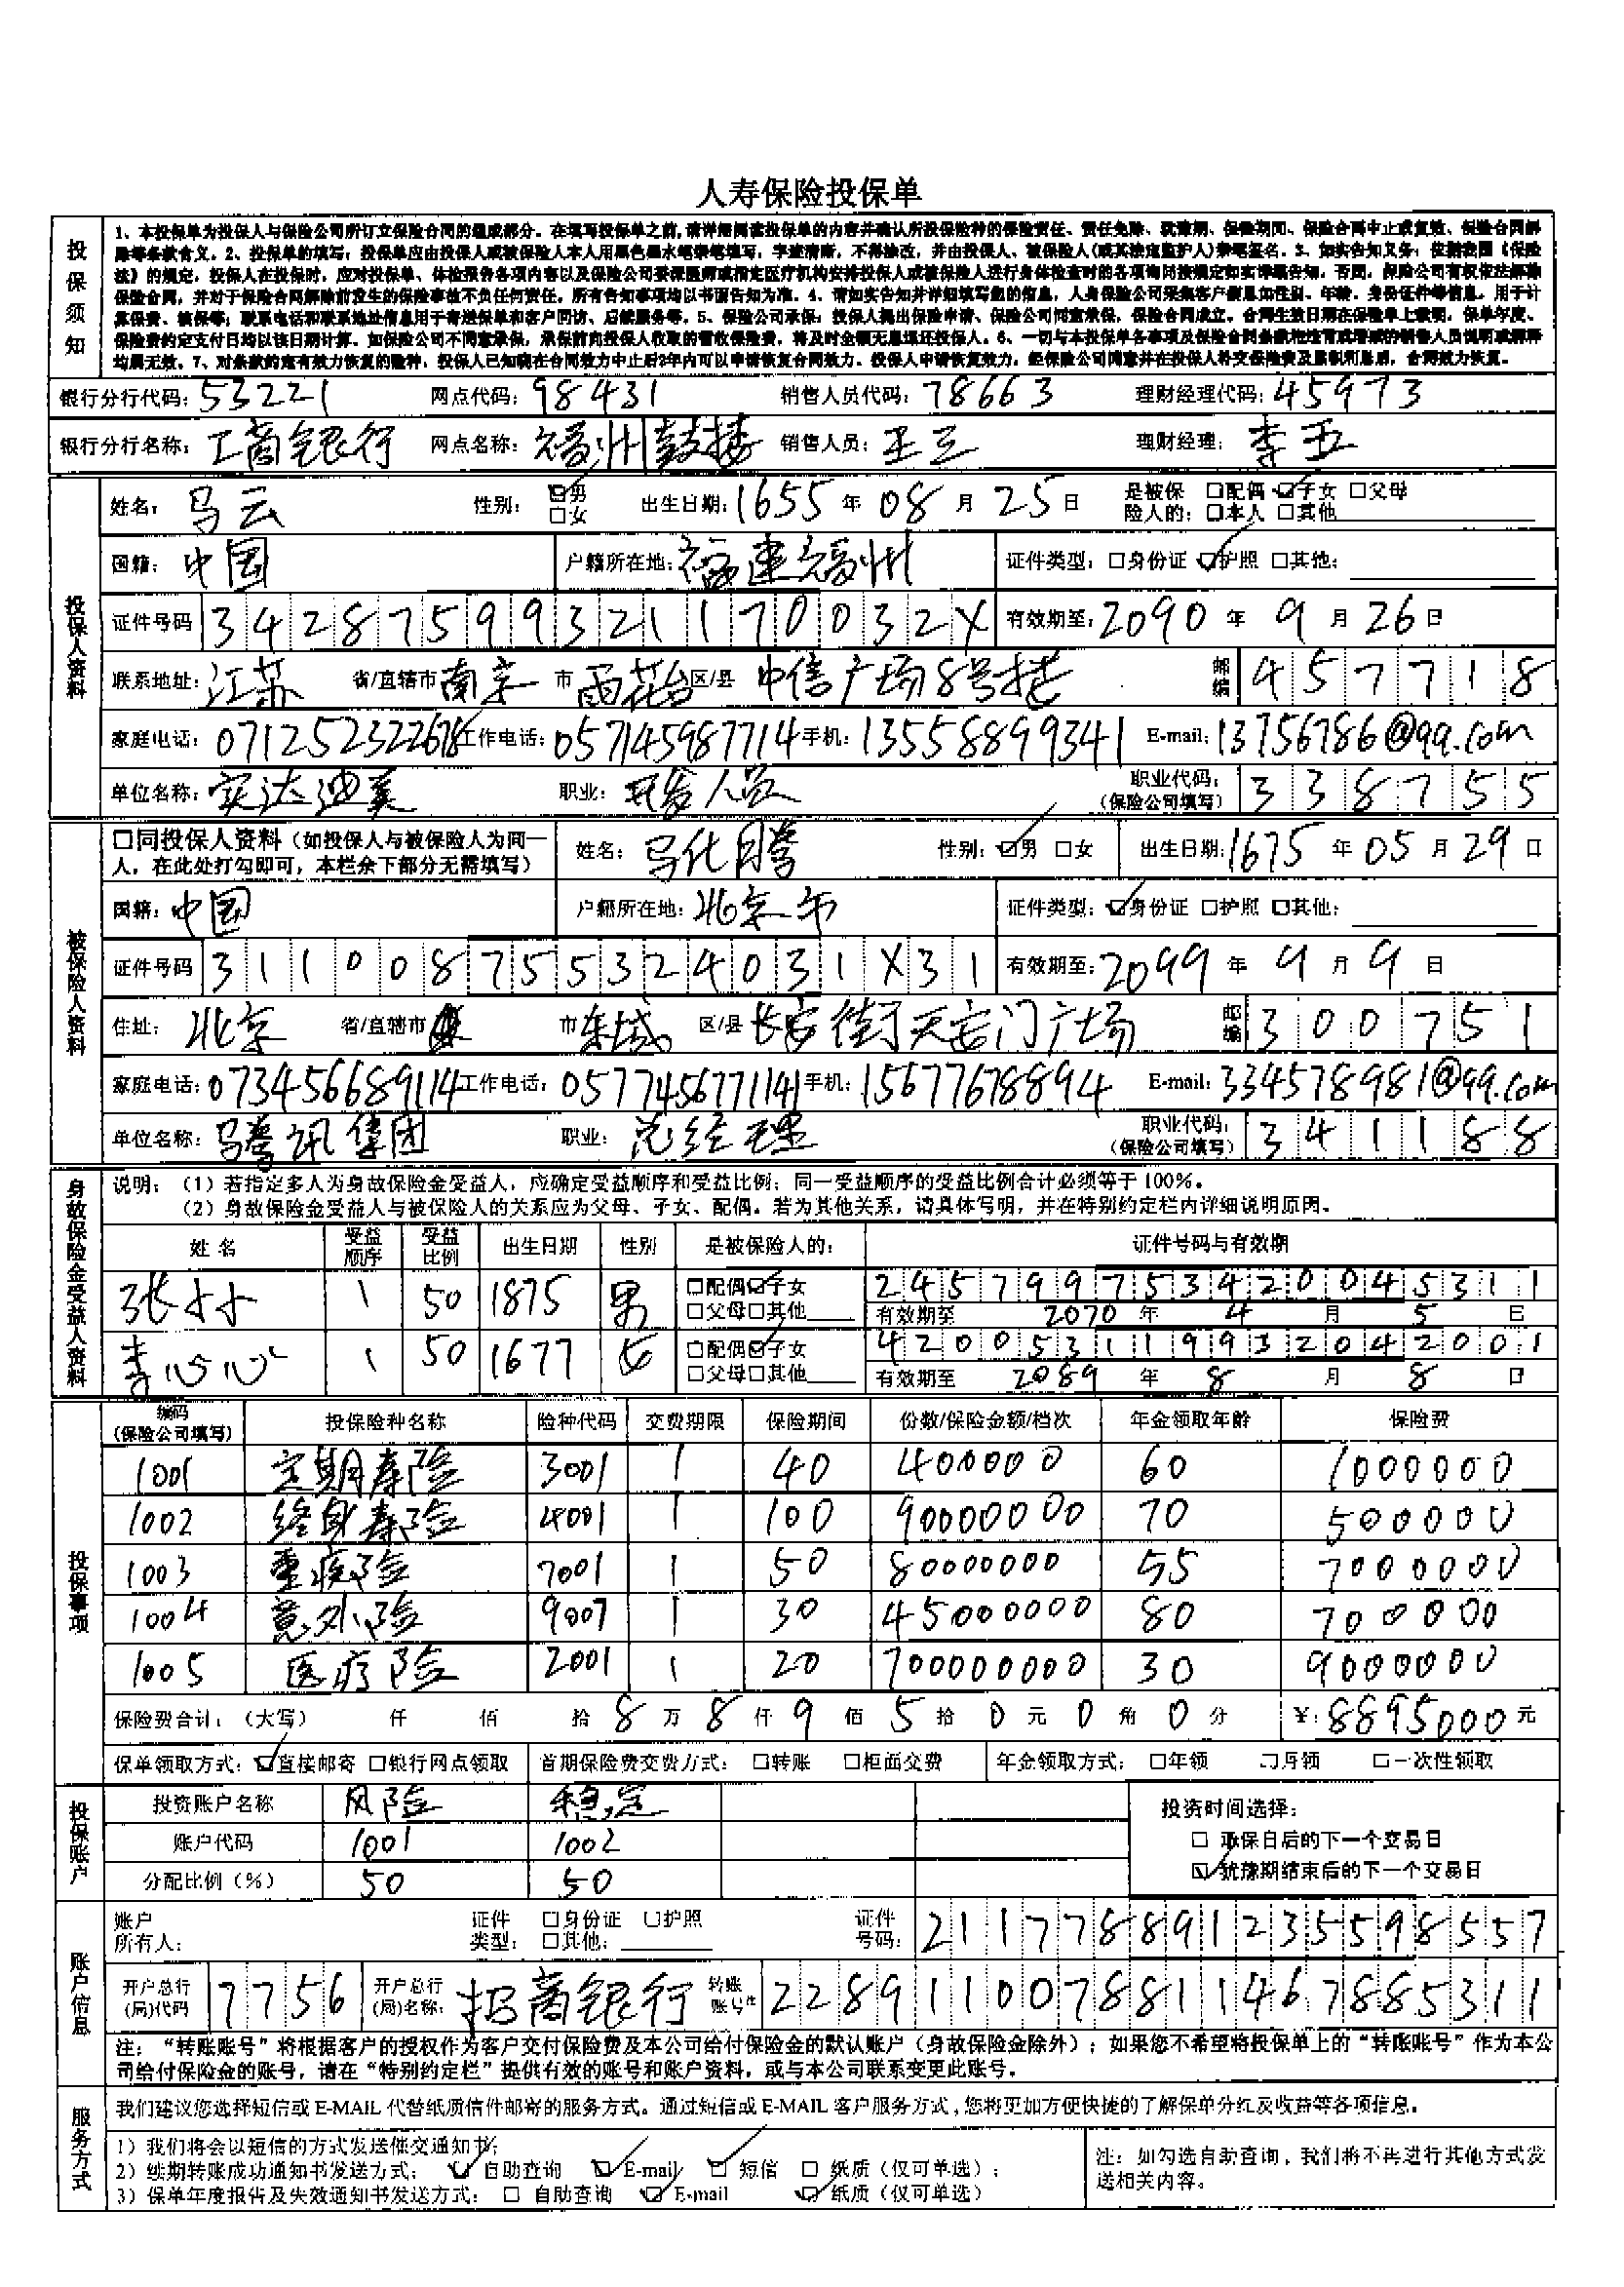 人寿保险投保单
投保须知
1、本投保单为投保人与保险公司所订立保险合同的组成部分。在填写投保单之前,请详细阅读投保单的内容并确认所投保险种的保险责任、责任免除、犹豫期、保险期间、保险合同中止或复效、保险合同解
除等条款含义。2、投保单的填写:投保单应由投保人或被保险人本人用黑色墨水笔亲笔填写,字迹清晰,不得涂改,并由投保人、被保险人(或其法定监护人)亲笔签名。3、如实告知义务:依据我国《保险
法》的规定,投保人在投保时,应对投保单、体检报告各项内容以及保险公司委保医师或指定医疗机构安排投保人或被保险人进行身体检查时的各项询问按规定如实详细告知,否则,保险公司有权依法解除
保险合同,并对于保险合同解除前发生的保险事故不负任何责任。所有告知事项均以书面告知为准。4、请如实告知并详细填写您的信息,人身保险公司采集客户信息如性别、年龄、身份证件等信息,用于计
算保费、核保等;联系电话和联系地址信息用于寄送保单和客户回访、后续服务等。5、保险公司承保:投保人提出保险申请、保险公司同意承保,保险合同成立。合同生效日期在保险单上载明,保单年度、
保险费约定支付日均以该日期计算。如保险公司不同意承保,承保前向投保人收取的暂收保险费,将及时全额无息退还投保人。6、一切与本投保单各事项及保险合同条款相违背或增减的销售人员说明或解释
均属无效。7、对条款约定有效力恢复的险种,投保人已知晓在合同效力中止后2年内可以申请恢复合同效力。投保人申请恢复效力,经保险公司同意并在投保人补交保险费及累积利息后,合同效力恢复。
银行分行代码:53221 网点代码:98431 销售人员代码:78663 理财经理代码:45973
银行分行名称:工商银行 网点名称:福州鼓楼 销售人员:王三 理财经理:李五
投保人资料
姓名:马云 性别:☑男 □女 出生日期:1655年08月25日 是被保险人的:□配偶 ☑子女 □父母 □本人 □其他
国籍:中国 户籍所在地:福建福州 证件类型:□身份证 ☑护照 □其他:
证件号码 34287599321170032X 有效期至:2090年9月26日
联系地址:江苏 省/直辖市 南京 市 雨花台 区/县 中信广场8号楼 邮编 457718
家庭电话:071252322678 工作电话:057145987714 手机:13558899341 E-mail:13756786@qq.com
单位名称:实达迪美 职业:开发人员 职业代码:(保险公司填写) 338755
被保险人资料
□同投保人资料(如投保人与被保险人为同一人,在此处打勾即可,本栏余下部分无需填写) 姓名:马化腾 性别:☑男 □女 出生日期:1675年05月29日
国籍:中国 户籍所在地:北京市 证件类型:☑身份证 □护照 □其他:
证件号码 311008755324031X31 有效期至:2099年9月9日
住址:北京 省/直辖市 市 东城 区/县 长安街天安门广场 邮编 300751
家庭电话:073456689114 工作电话:0577456771141 手机:15677678894 E-mail:334578981@qq.com
单位名称:马腾讯集团 职业:总经理 职业代码:(保险公司填写) 341188
身故保险金受益人资料
说明:(1)若指定多人为身故保险金受益人,应确定受益顺序和受益比例;同一受益顺序的受益比例合计必须等于100%。
(2)身故保险金受益人与被保险人的关系应为父母、子女、配偶。若为其他关系,请具体写明,并在特别约定栏内详细说明原因。
姓名 受益顺序 受益比例 出生日期 性别 是被保险人的: 证件号码与有效期
张大大 1 50 1875 男 □配偶☑子女 □父母□其他 245799753420045311
有效期至 2070年4月5日
李心心 1 50 1677 女 □配偶☑子女 □父母□其他 420053119932042001
有效期至 2089年8月8日
投保事项
编码(保险公司填写) 投保险种名称 险种代码 交费期限 保险期间 份数/保险金额/档次 年金领取年龄 保险费
1001 定期寿险 3001 1 40 400000 60 1000000
1002 终身寿险 4001 1 100 90000000 70 500000
1003 重疾险 7001 1 50 80000000 55 7000000
1004 意外险 9007 1 30 45000000 80 700000
1005 医疗险 2001 1 20 700000000 30 9000000
保险费合计:(大写) 仟 佰 拾 8万8仟9佰5拾0元0角0分 ¥:8895000元
保单领取方式:☑直接邮寄 □银行网点领取 首期保险费交费方式:□转账 □柜面交费 年金领取方式:□年领 □月领 □一次性领取
投保账户
投资账户名称 风险 稳定 投资时间选择:
账户代码 1001 1002 □ 承保日后的下一个交易日
分配比例(%) 50 50 ☑ 犹豫期结束后的下一个交易日
账户信息
账户所有人: 证件类型:□身份证 □护照 □其他: 证件号码:211778891235598557
开户总行(局)代码 7756 开户总行(局)名称:招商银行 转账账号 2289110078811467885311
注:“转账账号”将根据客户的授权作为客户交付保险费及本公司给付保险金的默认账户(身故保险金除外);如果您不希望将投保单上的“转账账号”作为本公
司给付保险金的账号,请在“特别约定栏”提供有效的账号和账户资料,或与本公司联系变更此账号。
服务方式
我们建议您选择短信或E-MAIL代替纸质信件邮寄的服务方式。通过短信或E-MAIL客户服务方式,您将更加方便快捷的了解保单分红及收益等各项信息。
1)我们将会以短信的方式发送催交通知书;
2)续期转账成功通知书发送方式:☑ 自助查询 ☑ E-mail ☑ 短信 □ 纸质(仅可单选);
3)保单年度报告及失效通知书发送方式:□ 自助查询 ☑ E-mail ☑ 纸质(仅可单选)
注:如勾选自助查询,我们将不再进行其他方式发送相关内容。